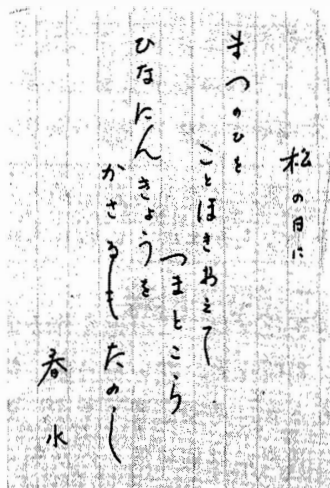 松の日に
まつのひを
ことほきおえて
つまとこら
ひなにんきょうを
かさるもたのし
春水